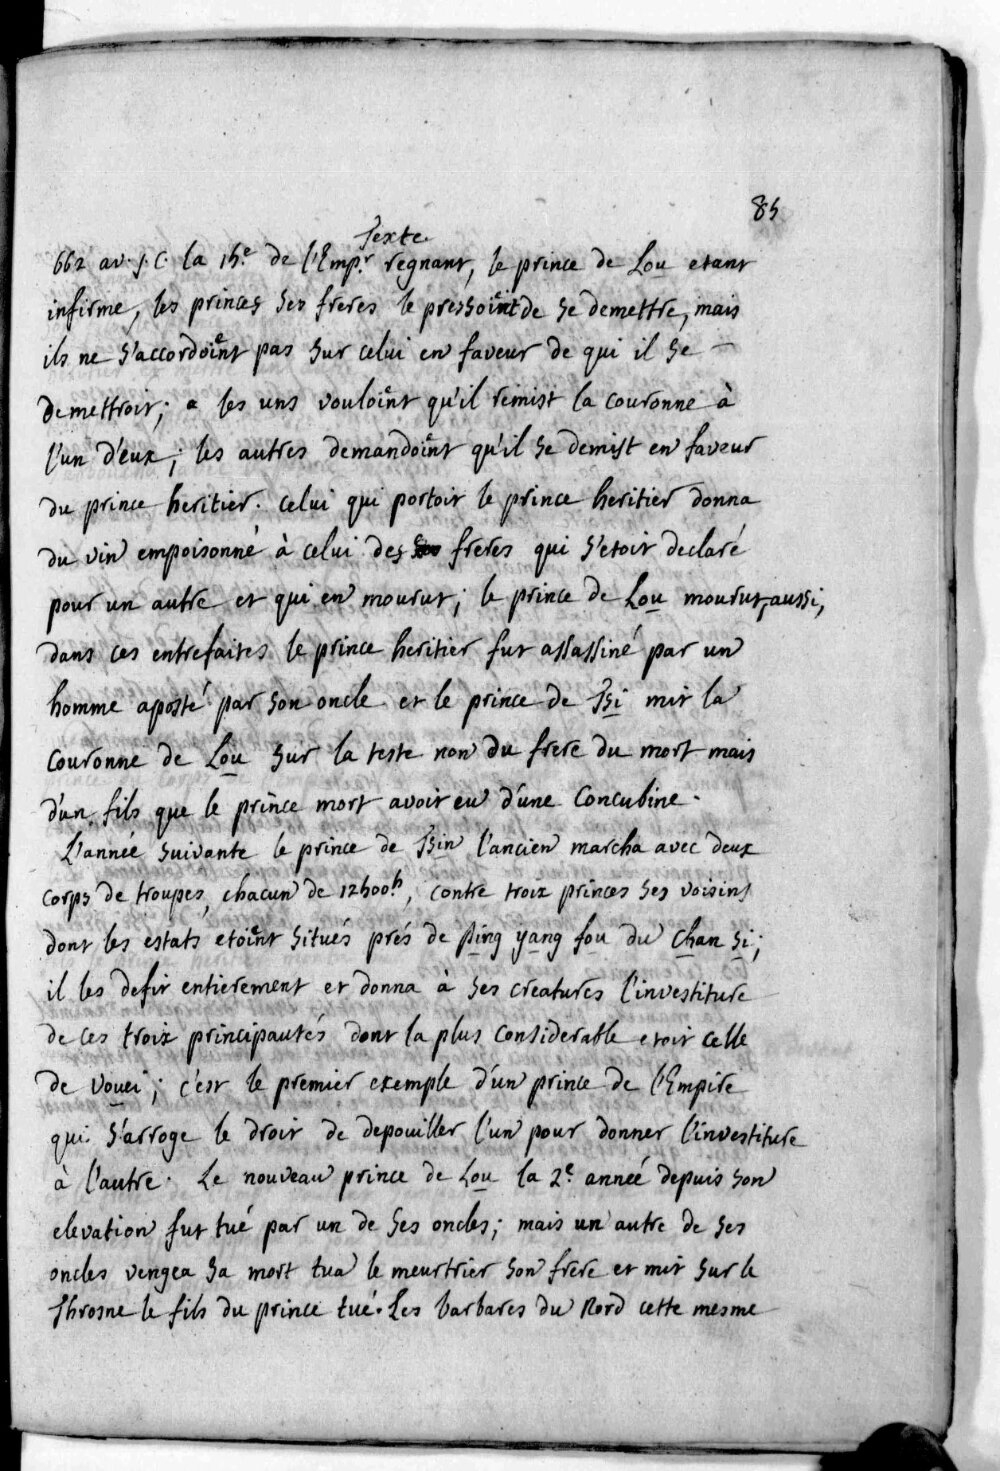 85
Texte
662 av. J. C. la 15.e de l'Emp.r regnant, le prince de Lou etant
infirme, les princes ses freres le pressoient de se demettre, mais
ils ne s'accordoient pas sur celui en faveur de qui il se
demettroit; les uns vouloient qu'il remist la couronne à
l'un d'eux; les autres demandoient qu'il se demist en faveur
du prince heritier. celui qui portoit le prince heritier donna
du vin empoisonné à celui des freres qui s'etoit declaré
pour un autre et qui en mourut; le prince de Lou mourut aussi,
dans ces entrefaites le prince heritier fut assassiné par un
homme aposté par son oncle et le prince de Tsi mit la
couronne de Lou sur la teste non du frere du mort mais
d'un fils que le prince mort avoit eu d'une Concubine.
L'année suivante le prince de Tsin l'ancien marcha avec deux
corps de troupes, chacun de 12500h, contre troix princes ses voisins
dont les estats etoient situés prés de Ping yang fou du Chan si;
il les defit entierement et donna à ses creatures l'investiture
de ces troix principautés dont la plus considerable etoit celle
de vouei; c'est le premier exemple d'un prince de l'Empire
qui s'arroge le droit de depouiller l'un pour donner l'investiture
à l'autre. Le nouveau prince de Lou la 2.e année depuis son
elevation fut tué par un de ses oncles; mais un autre de ses
oncles vengea sa mort tua le meurtrier son frere et mit sur le
Throsne le fils du prince tué. Les barbares du Nord cette mesme